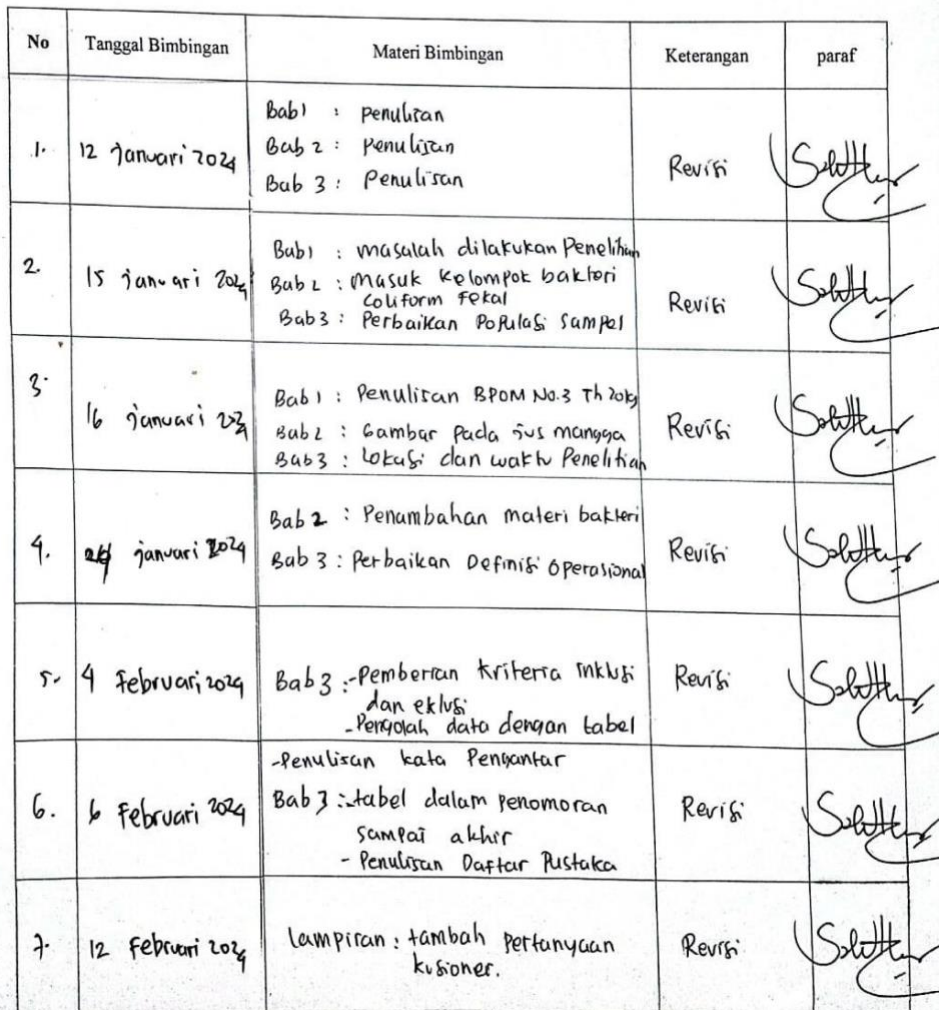 No Tanggal Bimbingan Materi Bimbingan Keterangan paraf
1. 12 Januari 2024 Revisi
Bab 1 : Penulisan
Bab 2 : Penulisan
Bab 3 : Penulisan
2. 15 januari 2024 Revisi
Bab 1 : masalah dilakukan Penelitian
Bab 2 : Masuk Kelompok bakteri
Coliform Fekal
Bab 3 : Perbaikan Populasi Sampel
3. 16 januari 2024 Revisi
Bab 1 : Penulisan BPOM No.3 Th
Bab 2 : Gambar Pada jus mangga
Bab 3 : Lokasi dan waktu Penelitian
4. januari 2024 Revisi
Bab 2 : Penambahan materi bakteri
Bab 3 : Perbaikan Definisi Operasional
5. 4 Februari, 2024 Revisi
Bab 3 : -Pemberian kriteria inklusi
dan eklusi
-Pengolah data dengan tabel
6. 6 Februari 2024 Revisi
-Penulisan kata Pengantar
Bab 3 : -tabel dalam penomoran
sampai akhir
- Penulisan Daftar Pustaka
7. 12 Februari 2024 Revisi
Lampiran : tambah pertanyaan
kusioner.